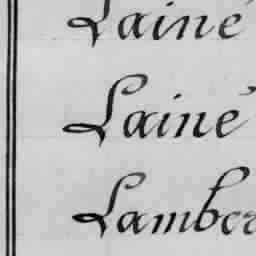 Lainé
Lainé
Lamber